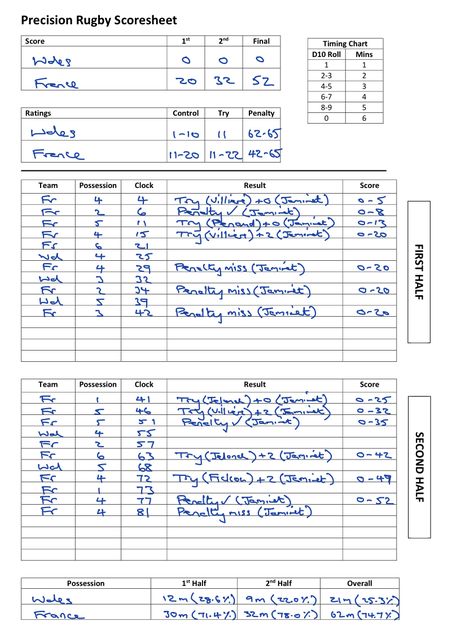 Precision Rugby Scoresheet
Score 1st 2nd Final
Wales 0 0 0
France 20 32 52
Timing Chart
D10 Roll Mins
1 1
2-3 2
4-5 3
6-7 4
8-9 5
0 6
Ratings Control Try Penalty
Wales 1-10 11 62-65
France 11-20 11-22 42-65
Team Possession Clock Result Score
Fr 4 4 Try (Villiere) +0 (Jaminet) 0-5
Fr 2 6 Penalty ✓ (Jaminet) 0-8
Fr 5 11 Try (Penaud) +0 (Jaminet) 0-13
Fr 4 15 Try (Villiere) +2 (Jaminet) 0-20
Fr 6 21
Wal 4 25
Fr 4 29 Penalty miss (Jaminet) 0-20
Wal 3 32
Fr 2 34 Penalty miss (Jaminet) 0-20
Wal 5 39
Fr 3 42 Penalty miss (Jaminet) 0-20
FIRST HALF
Team Possession Clock Result Score
Fr 1 41 Try (Jelonch) +0 (Jaminet) 0-25
Fr 5 46 Try (Villiere) +2 (Jaminet) 0-32
Fr 5 51 Penalty ✓ (Jaminet) 0-35
Wal 4 55
Fr 2 57
Fr 6 63 Try (Jelonch) +2 (Jaminet) 0-42
Wal 5 68
Fr 4 72 Try (Fickou) +2 (Jaminet) 0-49
Fr 1 73
Fr 4 77 Penalty ✓ (Jaminet) 0-52
Fr 4 81 Penalty miss (Jaminet)
SECOND HALF
Possession 1st Half 2nd Half Overall
Wales 12m (28.6%) 9m (22.0%) 21m (25.3%)
France 30m (71.4%) 32m (78.0%) 62m (74.7%)